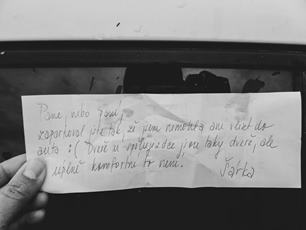 Pane, nebo paní,
zaparkoval jste tak, že jsem nemohla ani vlézt do
auta :( Dveře u spolujezdce jsou taky dveře, ale
úplně komfortní to není.
Šárka